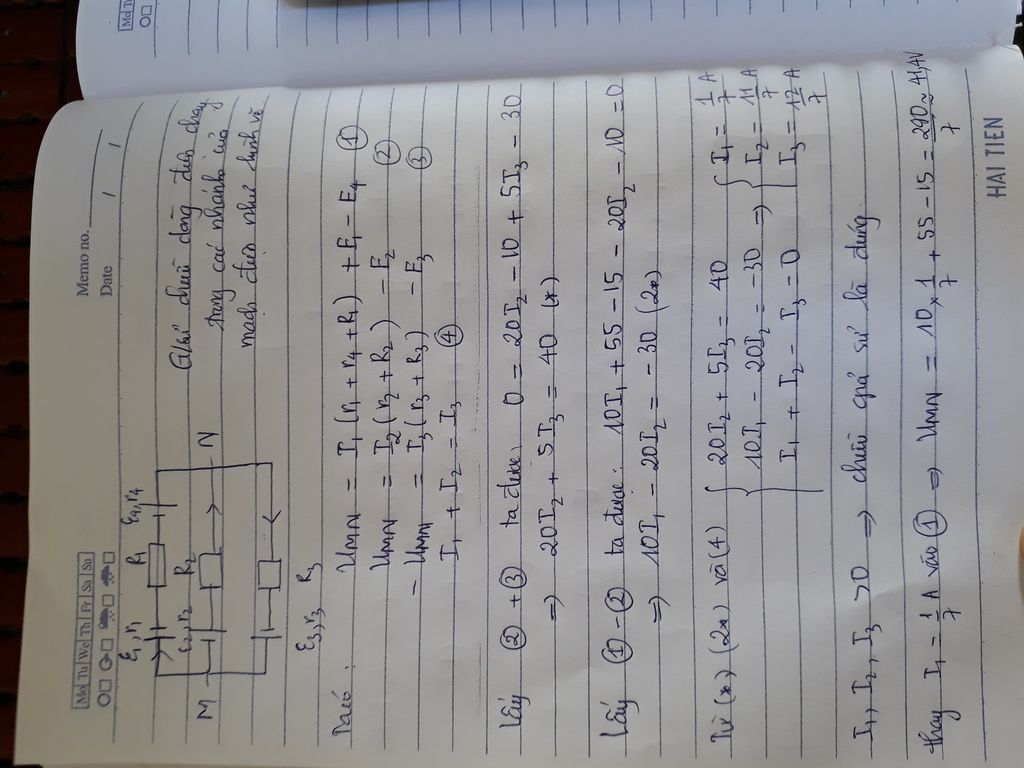 Mo Tu We Th Fr Sa Su
Memo no.
Date / /
E₁, r₁ R₁ E₄, r₄
M E₂, r₂ R₂ N
E₃, r₃ R₃
G/sử chiều dòng điện chạy
trong các nhánh của
mạch điện như hình vẽ
Ta có: U_MN = I₁(r₁ + r₄ + R₁) + E₁ - E₄ ①
U_MN = I₂(r₂ + R₂) - E₂ ②
- U_MN = I₃(r₃ + R₃) - E₃ ③
I₁ + I₂ = I₃ ④
Lấy ② + ③ ta được: 0 = 20I₂ - 10 + 5I₃ - 30
=> 20I₂ + 5I₃ = 40 (*)
Lấy ① - ② ta được: 10I₁ + 55 - 15 - 20I₂ - 10 = 0
=> 10I₁ = 20I₂ = -30 (2*)
Từ (*) (2*) và (4) { 20I₂ + 5I₃ = 40 { I₁ = 1/7 A
10I₁ - 20I₂ = -30 => I₂ = 11/7 A
I₁ + I₂ - I₃ = 0 I₃ = 12/7 A
I₁, I₂, I₃ > 0 => chiều giả sử là đúng
thay I₁ = 1/7 A vào ① => U_MN = 10 × 1/7 + 55 - 15 = 290/7 ≈ 41,4V
HAI TIEN